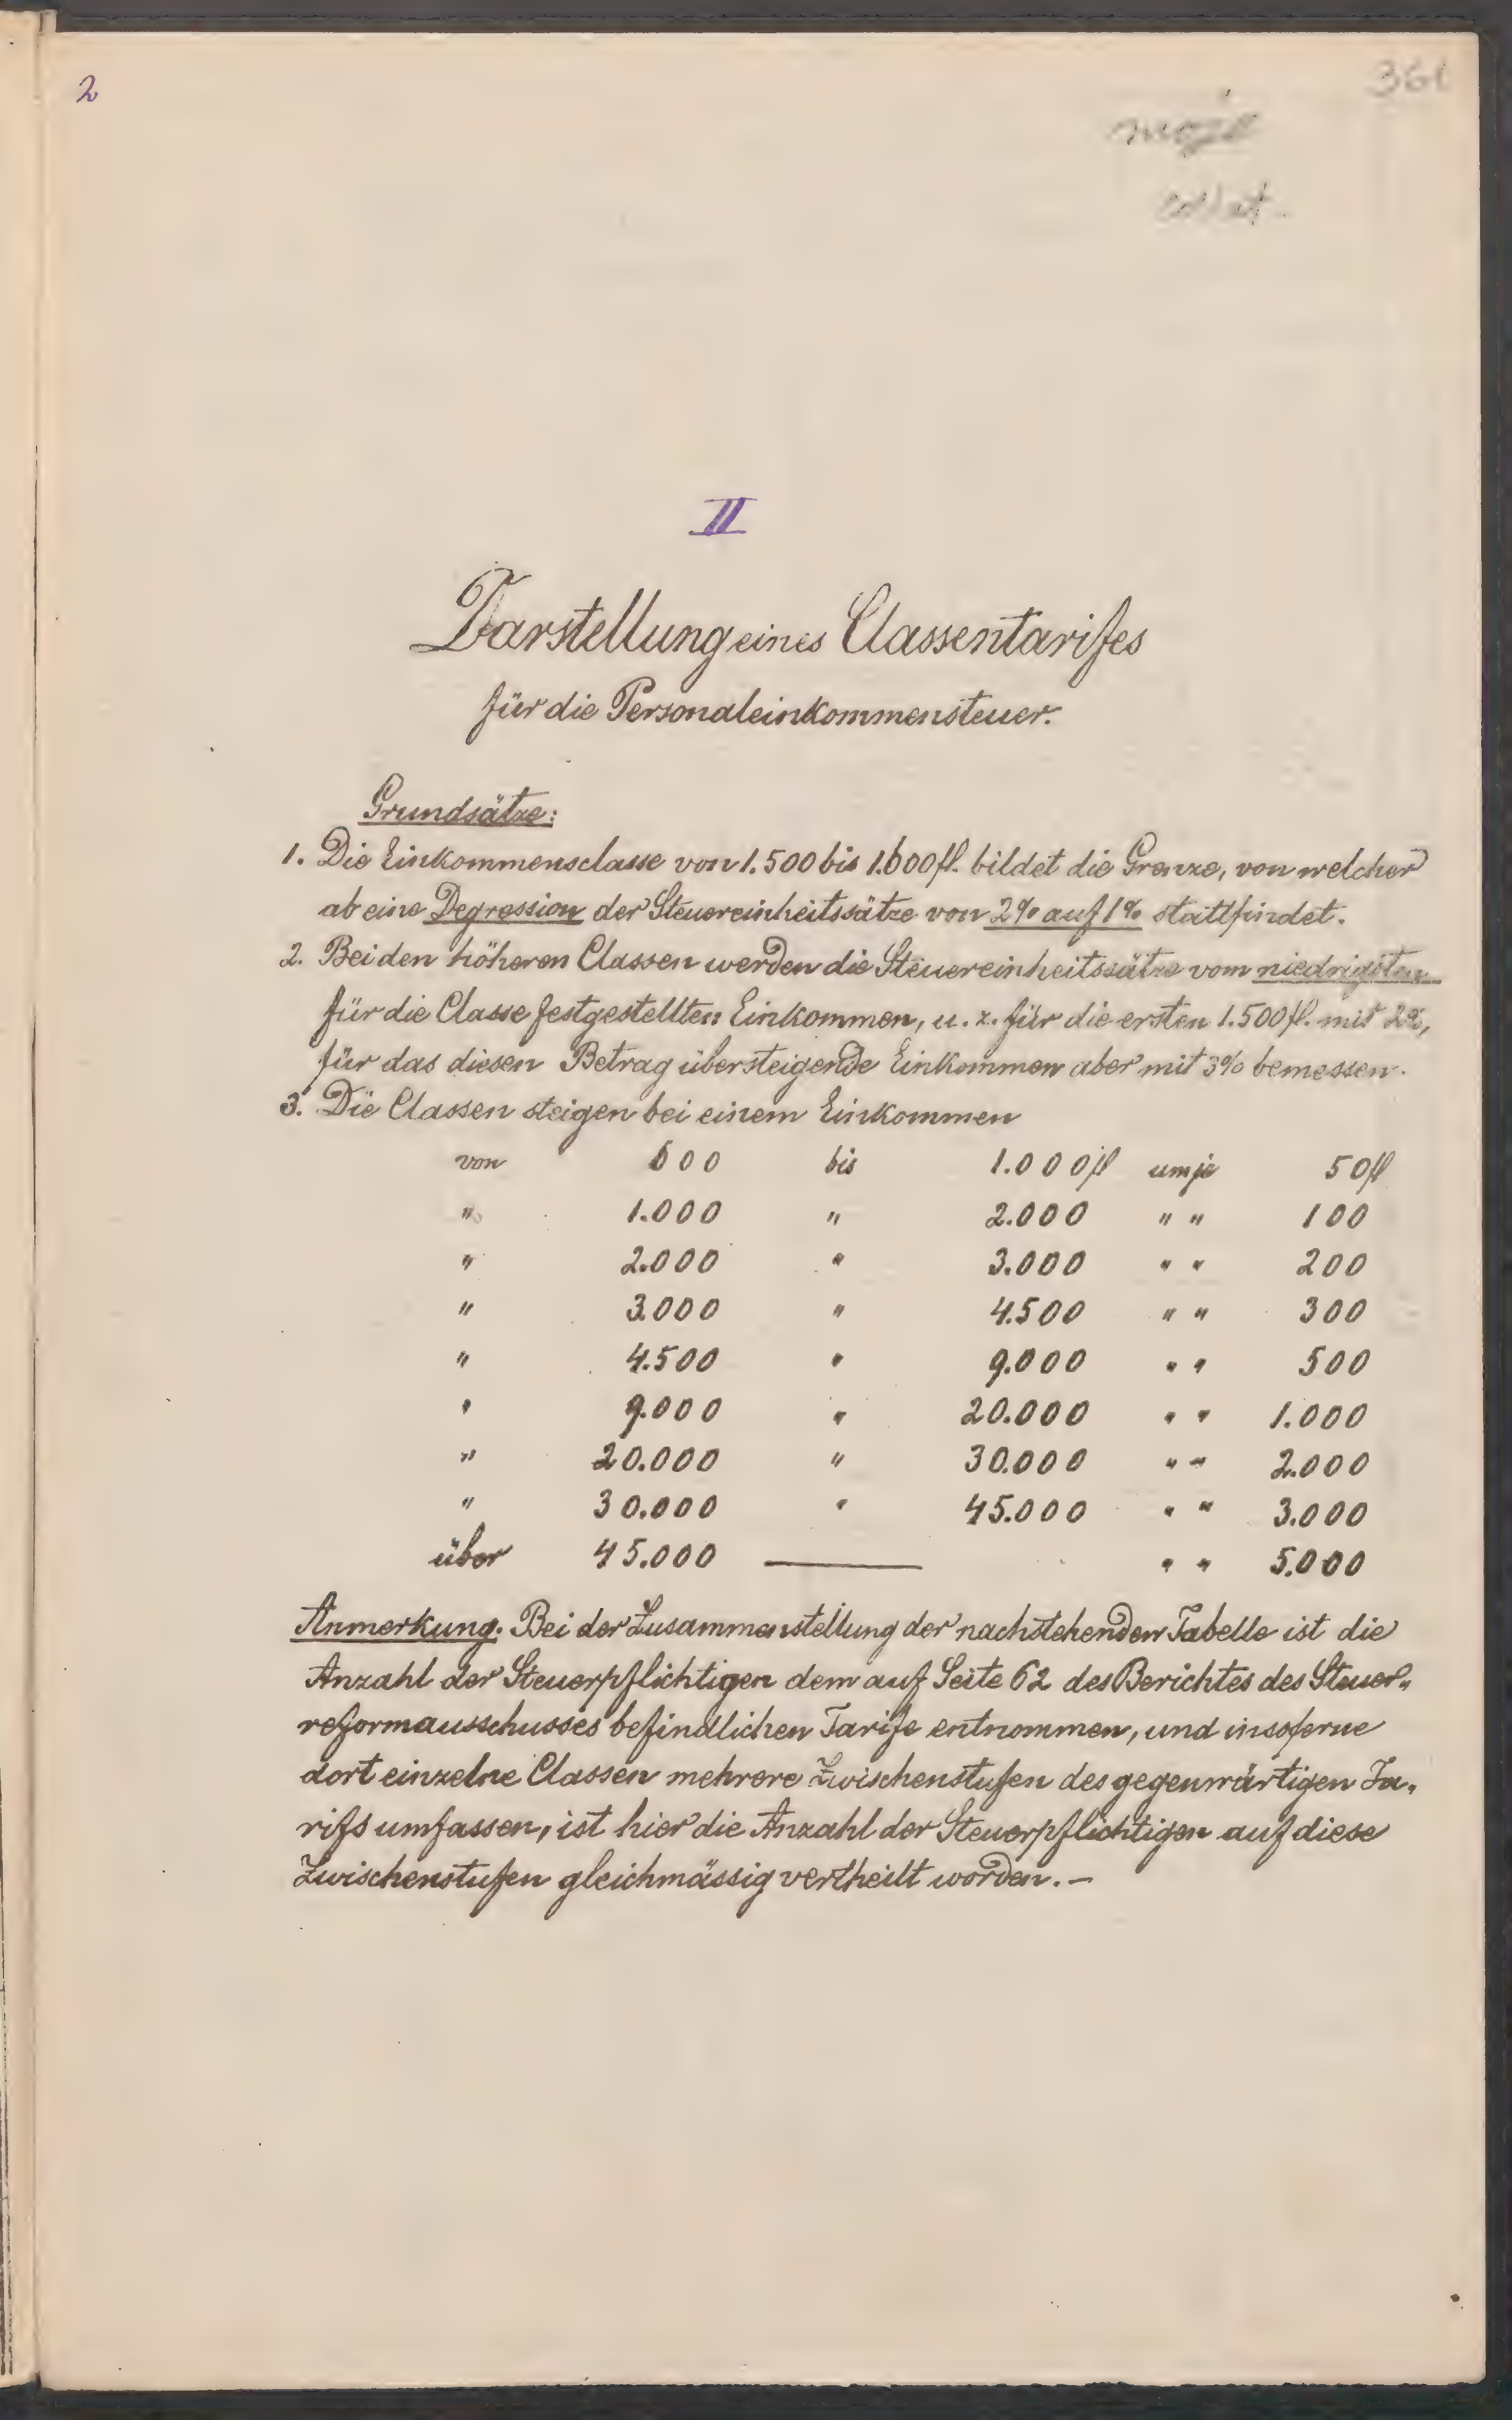 2
361
II
Darstellung eines Classentarifes
für die Personaleinkommensteuer.
Grundsätze:
1. Die Einkommensclasse von 1.500 bis 1.600 fl. bildet die Grenze, von welcher
ab eine Degression der Steuereinheitssätze von 2% auf 1% stattfindet.
2. Bei den höheren Classen werden die Steuereinheitssätze vom niedrigsten
für die Classe festgestellten Einkommen, u. z. für die ersten 1.500 fl. mit 2%,
für das diesen Betrag übersteigende Einkommen aber mit 3% bemessen.
3. Die Classen steigen bei einem Einkommen
von 600 bis 1.000 fl um je 50 fl
" 1.000 " 2.000 " " 100
" 2.000 " 3.000 " " 200
" 3.000 " 4.500 " " 300
" 4.500 " 9.000 " " 500
" 9.000 " 20.000 " " 1.000
" 20.000 " 30.000 " " 2.000
" 30.000 " 45.000 " " 3.000
über 45.000 — " " 5.000
Anmerkung. Bei der Zusammenstellung der nachstehenden Tabelle ist die
Anzahl der Steuerpflichtigen dem auf Seite 62 des Berichtes des Steuer-
reformausschusses befindlichen Tarife entnommen, und insoferne
dort einzelne Classen mehrere Zwischenstufen des gegenwärtigen Ta-
rifs umfassen, ist hier die Anzahl der Steuerpflichtigen auf diese
Zwischenstufen gleichmässig vertheilt worden. –